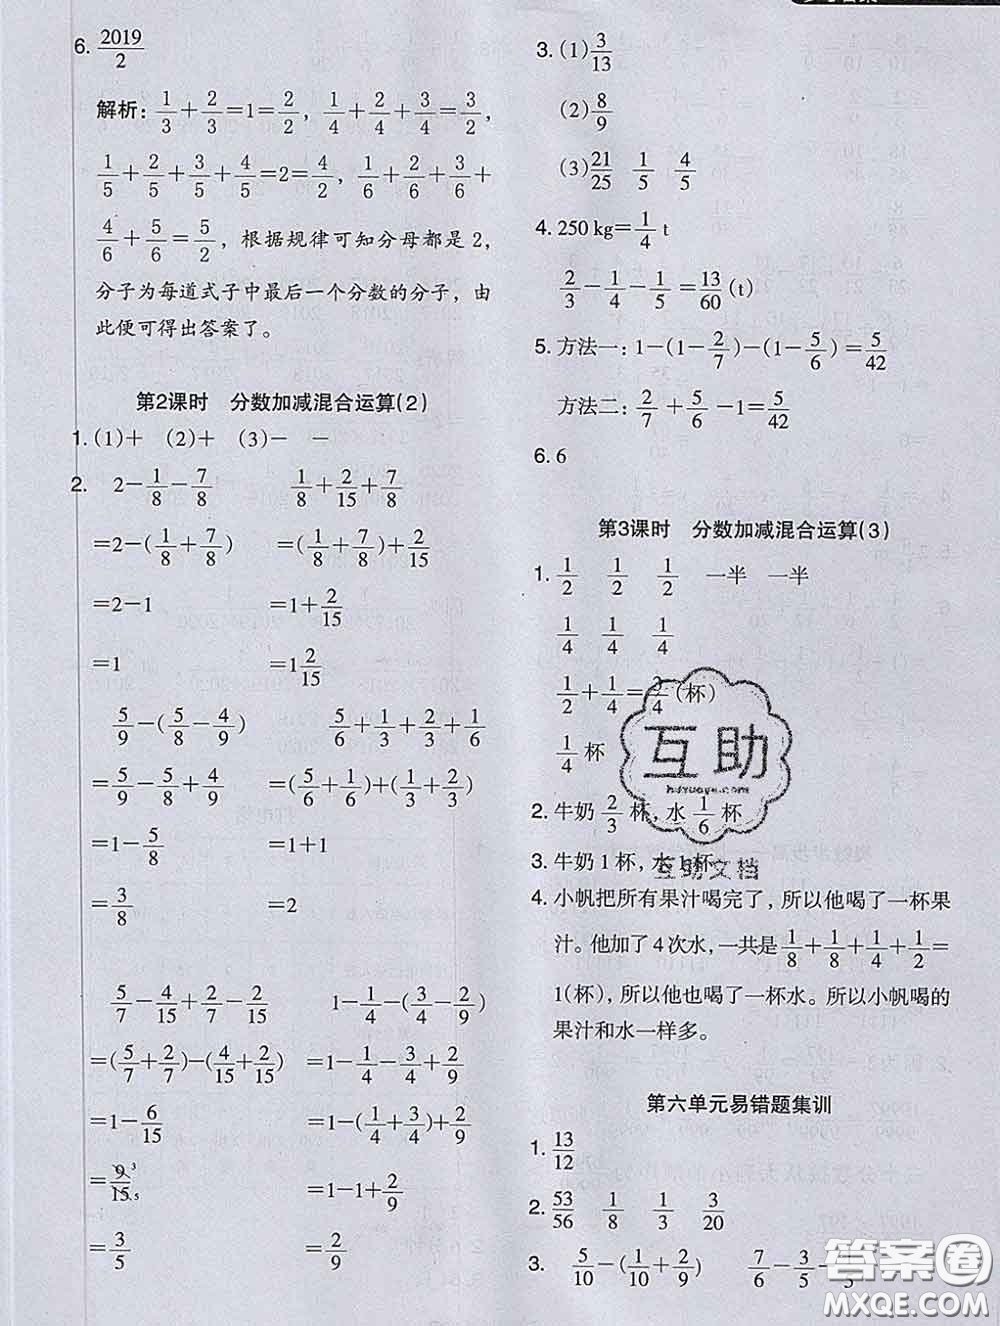 6. 2019/2
解析: 1/3+2/3=1=2/2, 1/4+2/4+3/4=3/2,
1/5+2/5+3/5+4/5=2=4/2, 1/6+2/6+3/6+
4/6+5/6=5/2, 根据规律可知分母都是 2,
分子为每道式子中最后一个分数的分子, 由
此便可得出答案了。
第2课时 分数加减混合运算(2)
1. (1)+ (2)+ (3)- -
2. 2-1/8-7/8 1/8+2/15+7/8
=2-(1/8+7/8) =(1/8+7/8)+2/15
=2-1 =1+2/15
=1 =1 2/15
5/9-(5/8-4/9) 5/6+1/3+2/3+1/6
=5/9-5/8+4/9 =(5/6+1/6)+(1/3+2/3)
=1-5/8 =1+1
=3/8 =2
5/7-4/15+2/7-2/15 1-1/4-(3/4-2/9)
=(5/7+2/7)-(4/15+2/15) =1-1/4-3/4+2/9
=1-6/15 =1-(1/4+3/4)+2/9
=9/15 3 5 =1-1+2/9
=3/5 =2/9
3. (1)3/13
(2)8/9
(3)21/25 1/5 4/5
4. 250 kg=1/4 t
2/3-1/4-1/5=13/60(t)
5. 方法一: 1-(1-2/7)-(1-5/6)=5/42
方法二: 2/7+5/6-1=5/42
6. 6
第3课时 分数加减混合运算(3)
1. 1/2 1/2 1/2 一半 一半
1/4 1/4 1/4
1/2+1/4=3/4(杯)
1/4杯
2. 牛奶 2/3 杯, 水 1/6 杯
3. 牛奶 1 杯, 水 1 杯
4. 小帆把所有果汁喝完了, 所以他喝了一杯果
汁。他加了 4 次水, 一共是 1/8+1/8+1/4+1/2=
1(杯), 所以他也喝了一杯水。所以小帆喝的
果汁和水一样多。
第六单元易错题集训
1. 13/12
2. 53/56 1/8 1/3 3/20
3. 5/10-(1/10+2/9) 7/6-3/5-
互助
hdzuoye.com
互助文档
答案圈
MXQE.COM